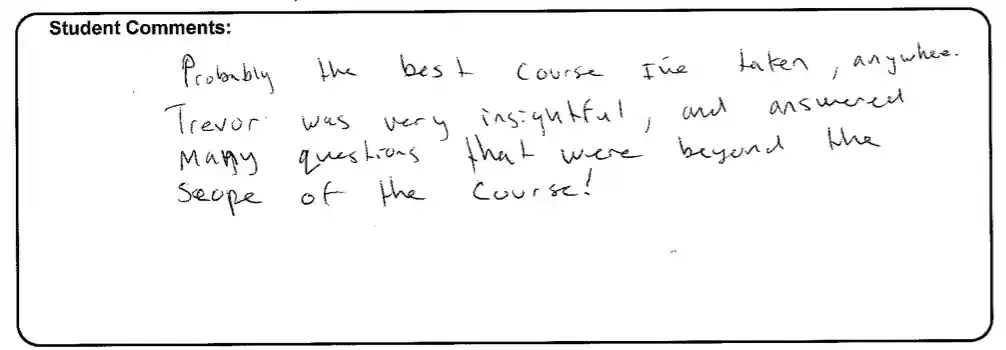 Student Comments:
Probably the best course I've taken, anywhee.
Trevor was very insightful, and answered
Many questions that were beyond the
Scope of the course!